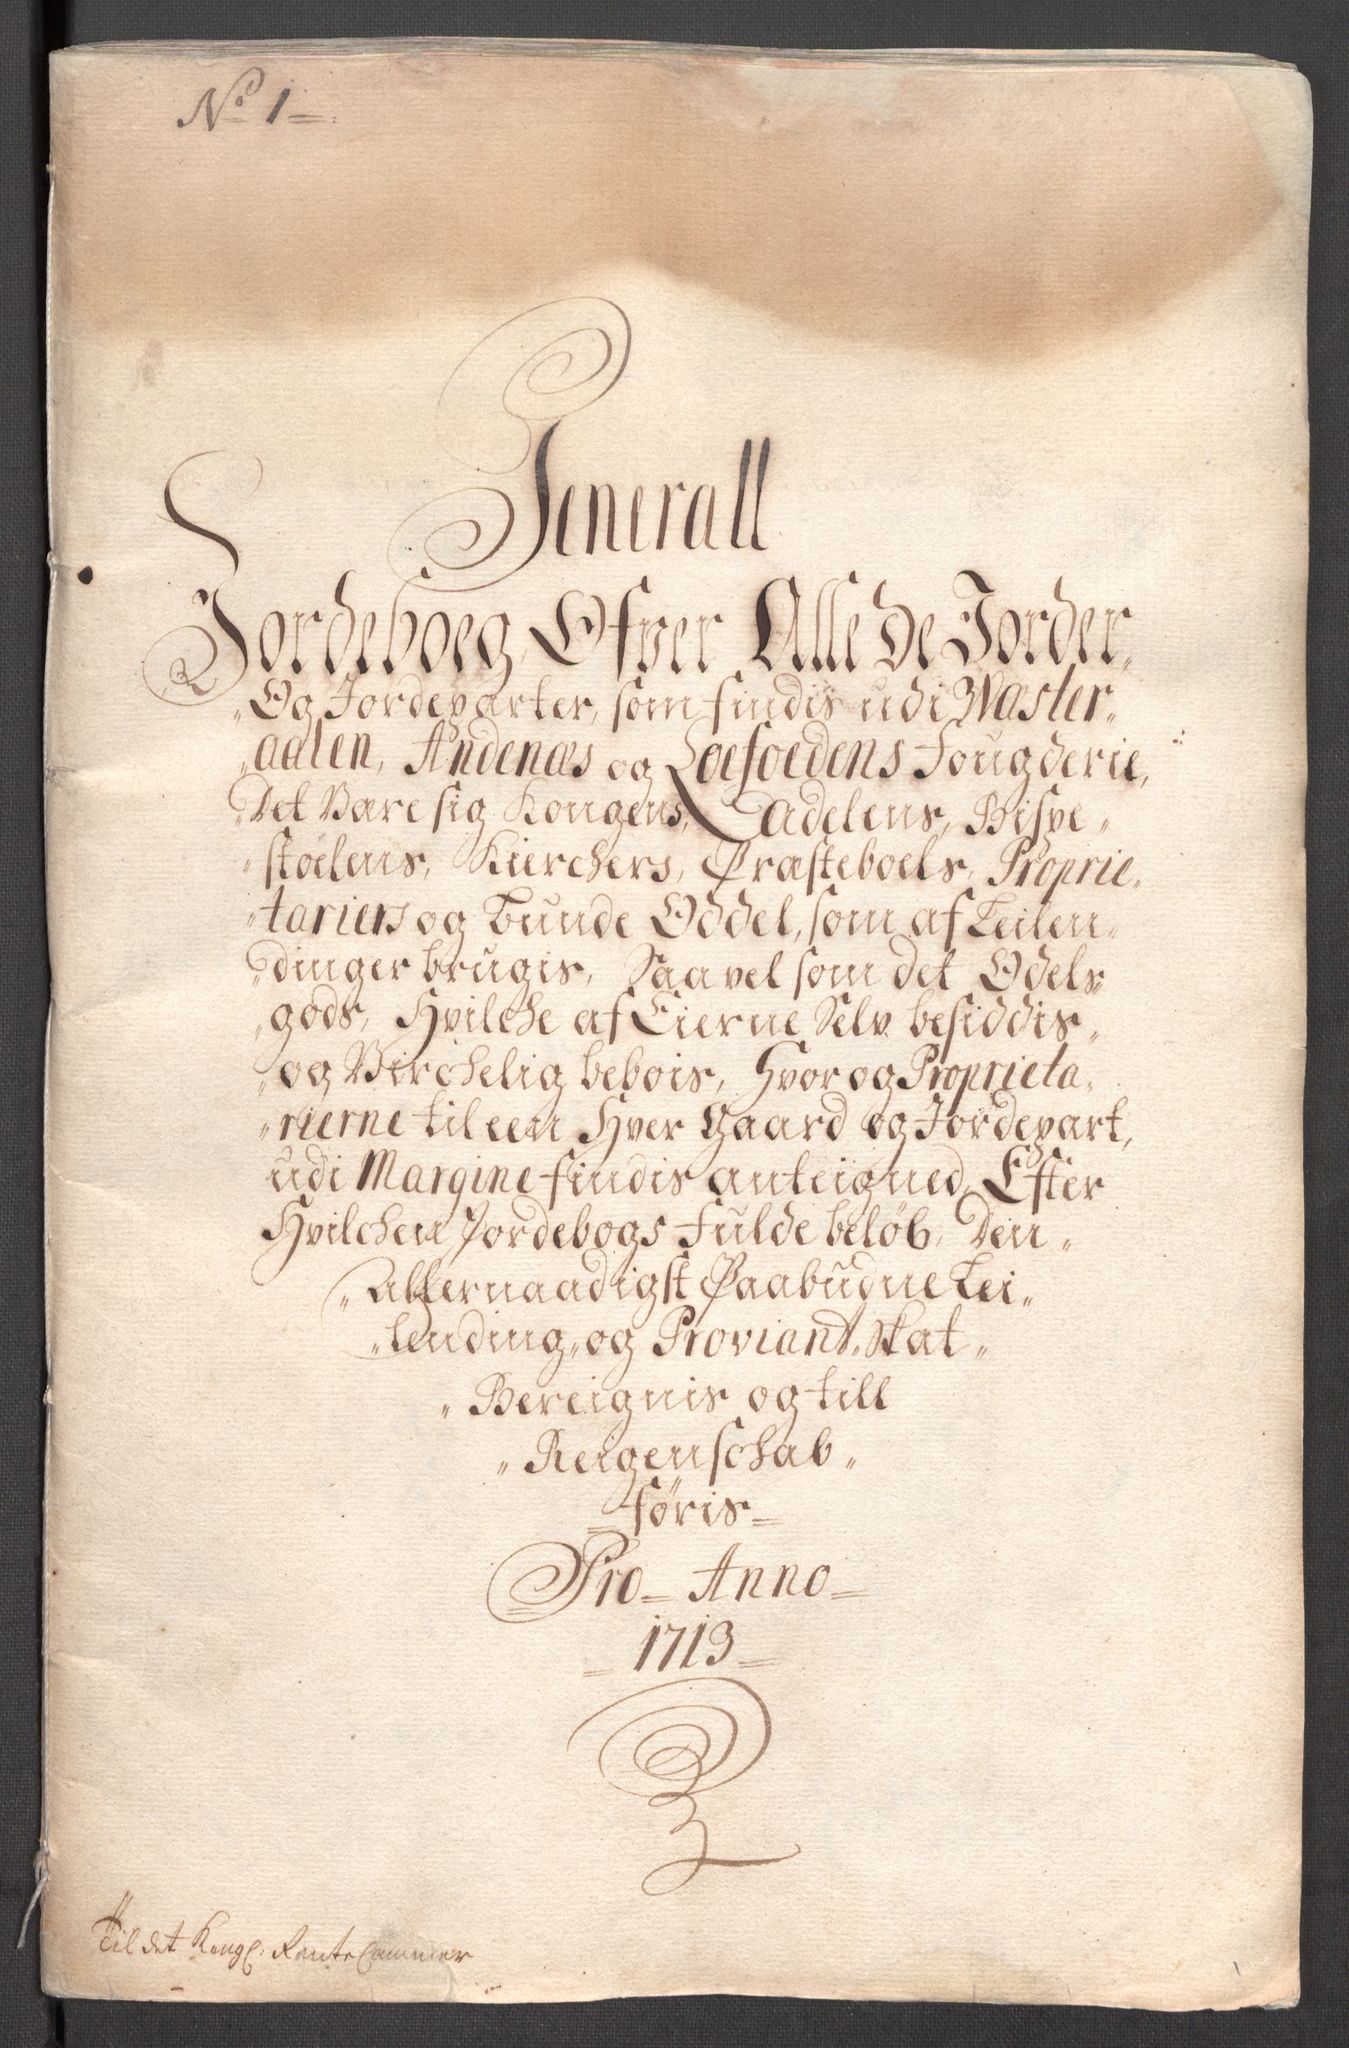 No 1
Generall
Jordeboeg, Ofver Alle de Jorder
Og Jordeparter, som findis udi Wæster
aalen, Andenæs og Loefoedens Fougderie,
Det Være sig Kongens, Adelens, Bispe
stoelens, Kierchers, Præsteboels, Proprie
tariers og Bunde Oddel, som af Leilen
dinger brugis, Saavel som det Odels
gods, Hvilche af Eierne Selv besiddis
og Virchelig bebois, Hvor og Proprieta
rierne til een Hver Gaard og Jordepart,
udi Margine findis anteigned, Efter
Hvilchen Jordebogs Fulde beløb, Den
Allernaadigst Paabudne Lei
lending og Proviant Skat
Bereignis og till
Reigenschab
føris
Pro Anno
1713
Til det Kongl: Rente Cammer